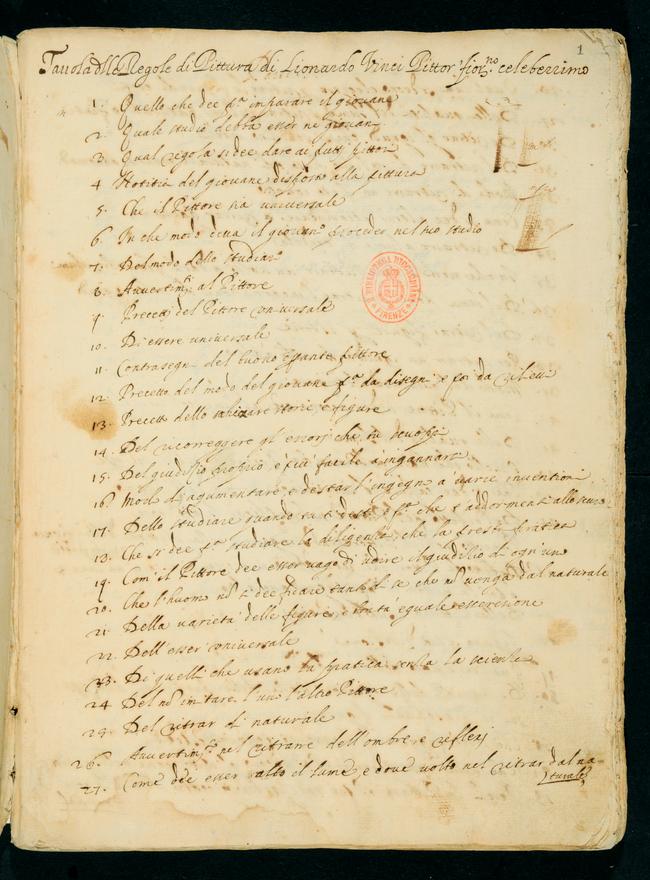 1
Tauola dlle Regole di Pittura di Lionardo Vinci Pittor: fior:no celeberrimo
1. Quello che dee p.a imparare il giouane
2. Quale studio debba esser ne giouani
3. Qual regola si dee dare ai putti pittori
4 Notitia del giouane disposto alla pittura
5. Che il Pittore sia vniuersale
6. In che modo deua il giouane proceder nel suo studio
7. Del modo dello studiare
8. Auuertim.ti al Pittore
9. Precetti del Pittore vniuersale
10. Di essere vniuersale
11. Contrasegni del buono pittore
12. Precetto del modo del giouane p.a da disegni e poi da rileui
13. Precetti dello schizare storie e figure
14. Del ricorreggere gl' errori che tu scuopri
15. Del giudizio proprio e piu facile a ingannarsi
16. Modo d' agumentare e destar l' ingegno a uarie inuentioni
17. Dello studiare quando tu ti desti e p.a che t' addormenti allo scuro
18. Che si dee p.a studiare la diligenza che la presta pratica
19. Com' il Pittore dee esser uago di udire il giudilio d' ogn' uno
20. Che l' huomo nõ si dee fidare tanto di se che nõ uenga dal naturale
21. Della varietà delle figure
22. Dell' esser vniuersale
23. Di quelli che usano la pratica senza la scienza
24 Del nõ imitare l' uno l' altro Pittore
25. Del ritrar di naturale
26. Auuertim.ti nel ritrarre dell' ombre e reflexj
27. Come dee esser alto il lume e doue uolto nel ritrar dal na-
turale
BIBLIOTECA RICCARDIANA
FIRENZE